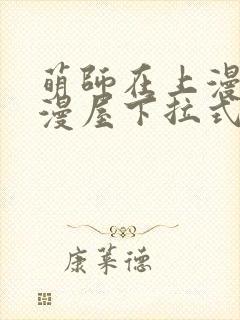 萌師在上漫
漫屋下拉式
康萊德